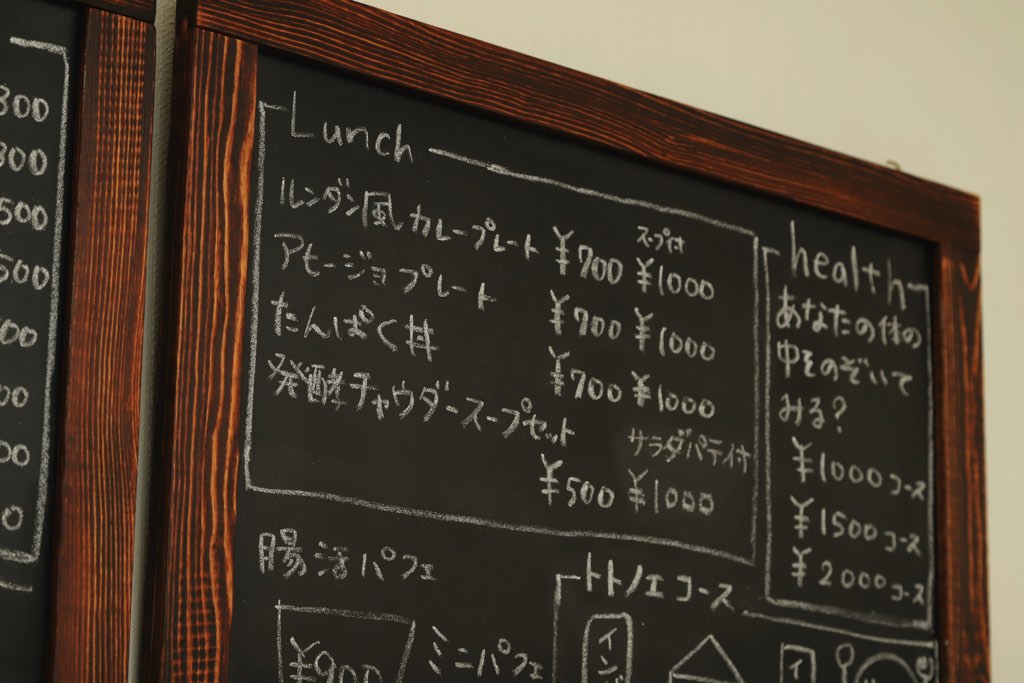 800
800
500
500
00
00
00
0
Lunch
スープ付
ルンダン風カレープレート ¥700 ¥1000
アヒージョプレート ¥700 ¥1000
たんぱく丼 ¥700 ¥1000
発酵チャウダースープセット
サラダパティ付
¥500 ¥1000
health
あなたの体の
中をのぞいて
みる?
¥1000コース
¥1500コース
¥2000コース
腸活パフェ
¥900
ミニパフェ
トトノエコース
イン
イ